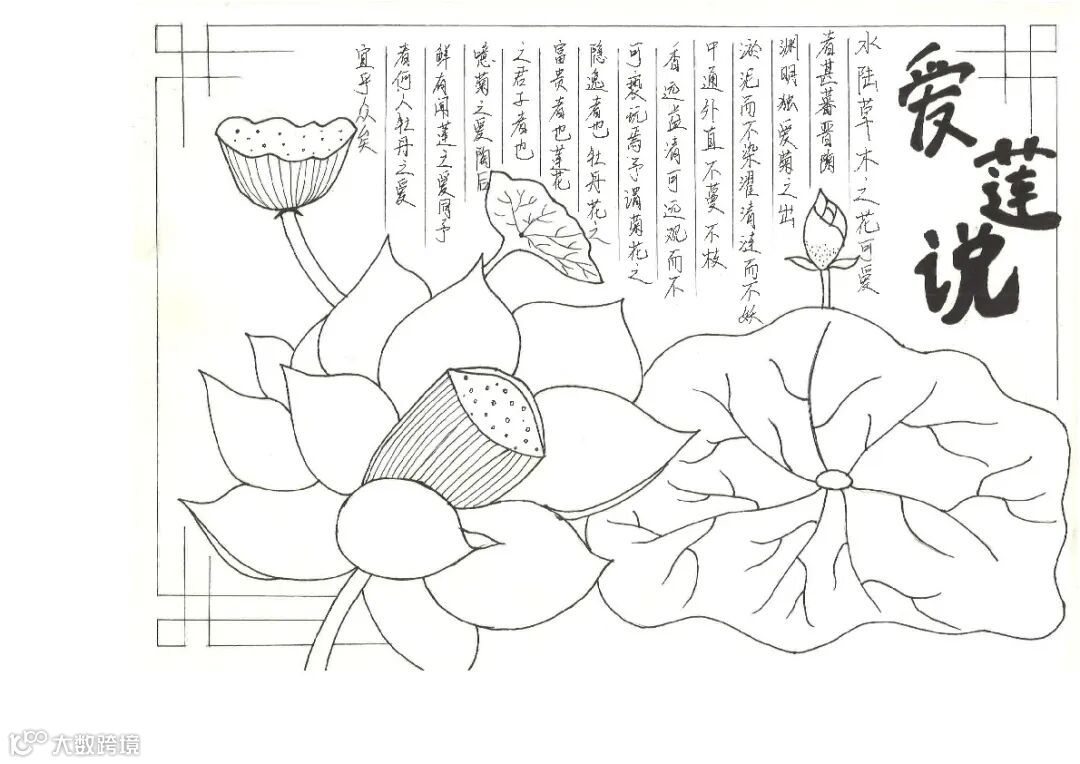 爱莲说
水陆草木之花可爱
者甚蕃晋陶
渊明独爱菊之出
淤泥而不染濯清涟而不妖
中通外直不蔓不枝
香远益清可远观而不
可亵玩焉予谓菊花之
隐逸者也牡丹花之
富贵者也莲花
之君子者也
噫菊之爱陶后
鲜有闻莲之爱同予
者何人牡丹之爱
宜乎众矣
大数跨境